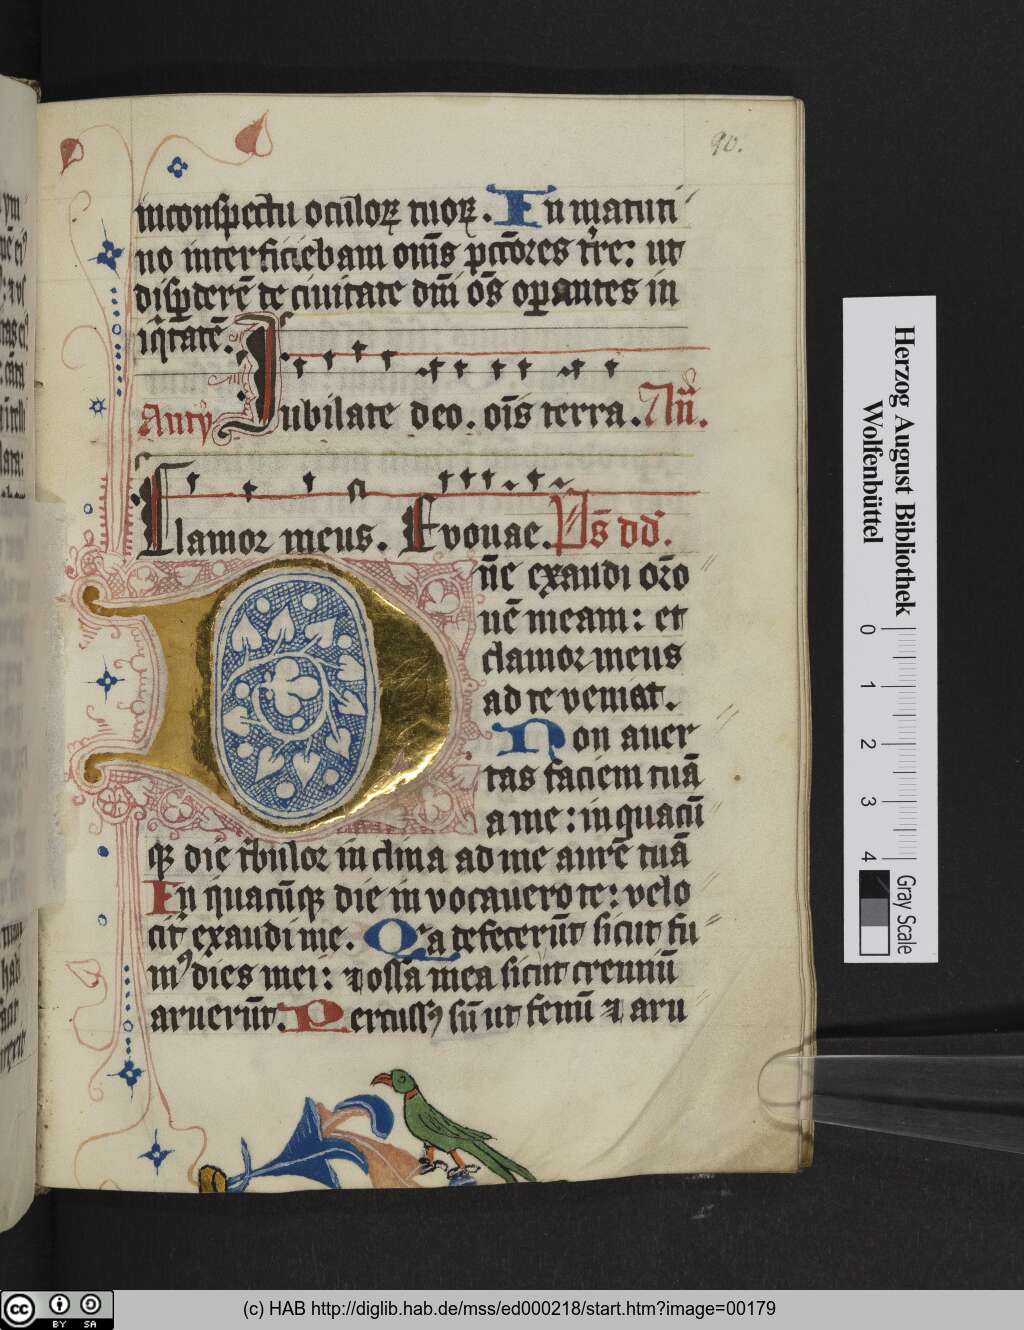 90.
inconspectu oculoꝝ tuoꝝ. In matuti
no interficiebam om̄s pct̄ores tr̄e: ut
disꝑderē te ciuitate dn̄i oēs oꝑantes in
iq̄tatē.
Anty Iubilate deo. oīs terra. An̄.
Clamor meus. Evovae. Ps̄ dd̄.
Dn̄e exaudi or̄o
nē meam: et
clamor meus
ad te veniat.
Non auer
tas faciem tuā
a me: in quacū
qꝫ die tͥbulor inclina ad me aurē tuā
In quacūqꝫ die invocauero te: velo
cit̄ exaudi me. Qͥa defecerūt sicut fu
mꝰ dies mei: ⁊ ossa mea sicut cremiū
aruerūt. Percussꝰ sū ut fenū ⁊ aru
Herzog August Bibliothek
Wolfenbüttel
0 1 2 3 4
Gray Scale
cc BY SA
(c) HAB http://diglib.hab.de/mss/ed000218/start.htm?image=00179